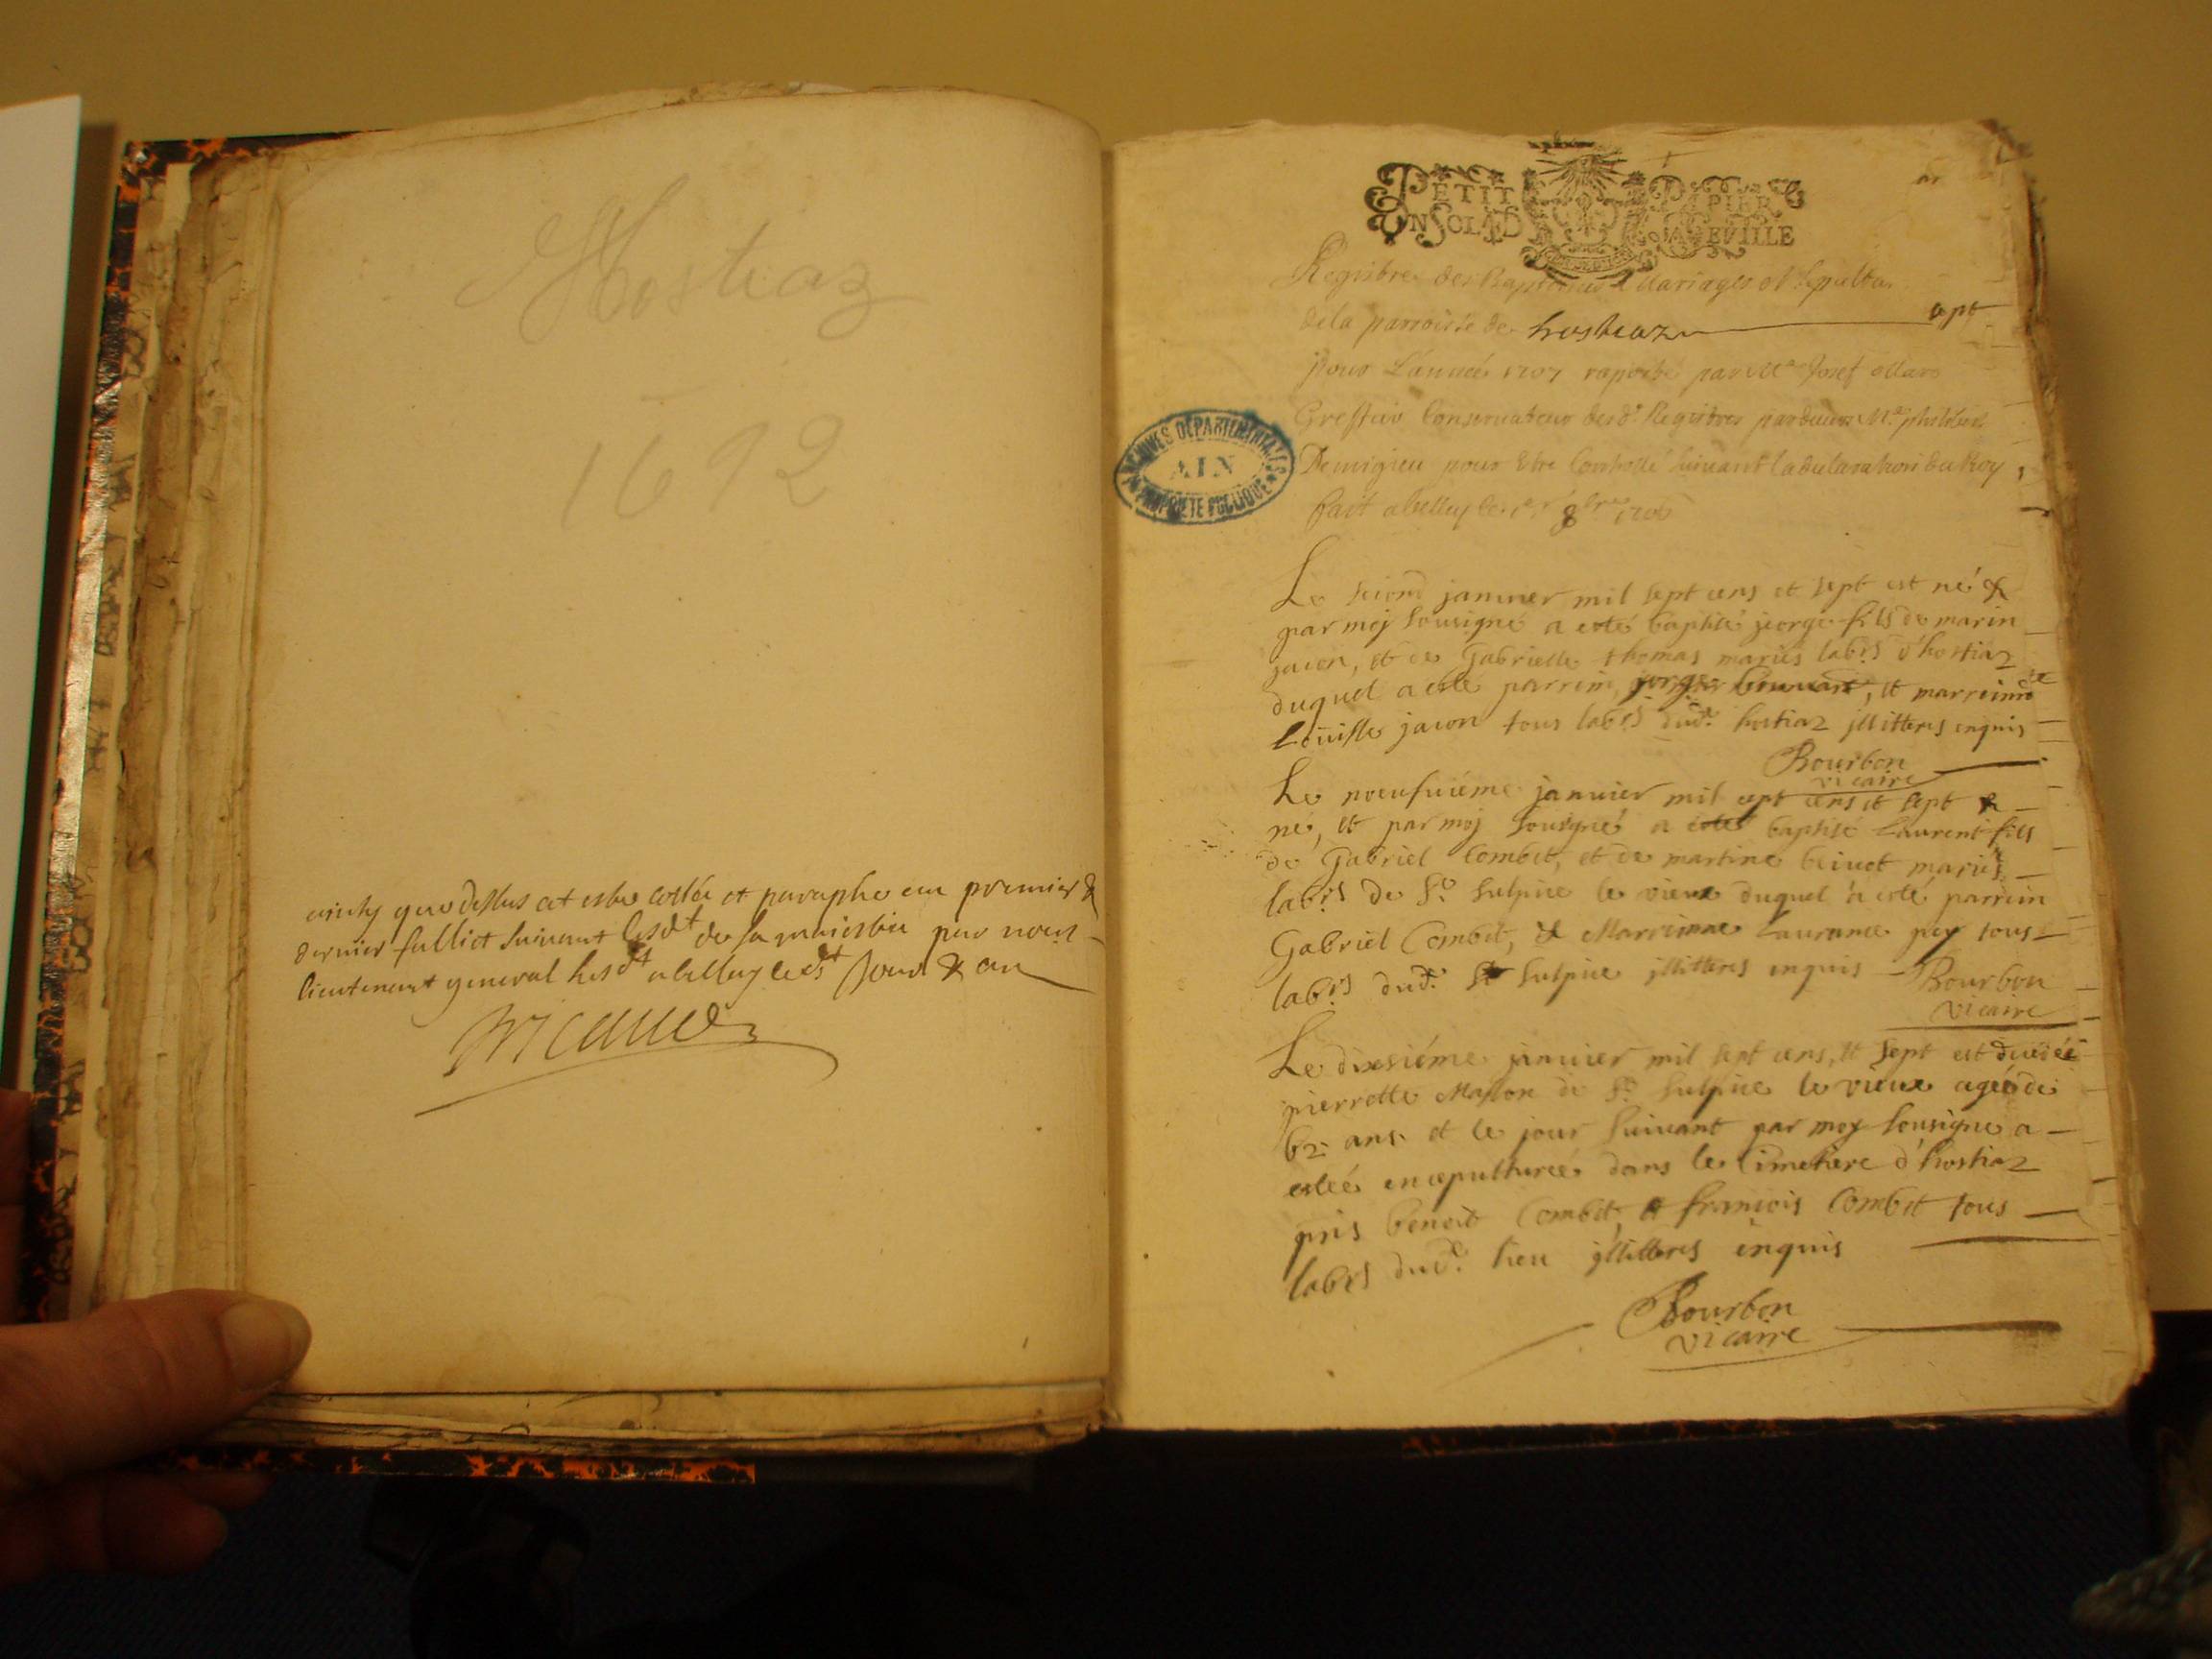 Hostiaz
1692
ainsy que dessus at estre cottée et paraphé au premier &
dernier fulliet suivant lesdt de sa maiesbie par nous
lieutenant general susdt a belley lesdt jour & an
PETIT PAPIER
UN SOL LA FEVILLE
Registre des Baptesmes Mariages et Sepultu
de la parroisse de hosteaz apt
pour L'année 1707 raporté par Me Josef
Greffier Conservateur desd. Registres pardevant Me
Demigieu pour Etre Controllé suivant la declaration du Roy,
fait a belley le 1er 8bre 1706
ARCHIVES DÉPARTEMENTALES
AIN
PROPRIÉTÉ PUBLIQUE
Le janvier mil sept cens et sept est né &
par moj sousigné a esté baptisé jeorge fils de marin
jacon, et de Gabrielle thomas mariés labrs d'hostiaz
duquel a esté parrein, jorge , et marreinne
Loüisse jacon tous labrs dud. hostiaz jllitteres enquis
Bourbon
vicaire
Le noeufuiéme janvier mil sept cens et sept &
né, et par moj sousigné a esté baptisé Laurent fils
de Gabriel Combet, et de martine mariés
labrs de St. Sulpice le vieux duquel a esté parrein
Gabriel Combet, & Marreinne Laurance tous
labrs dud. St Sulpice jllitteres enquis Bourbon
vicaire
Le dixsiéme janvier mil sept cens, et sept est duédéé
pierrette Masson de St. Sulpice le vieux agée de
62 ans. et le jour suivant par moy sousigné a
estéé ensepulturéé dans le Cimetiere d'hostiaz
pris benoit Combet, & francois Combet tous
labrs dud. lieu jllitteres enquis
Bourbon
vicaire